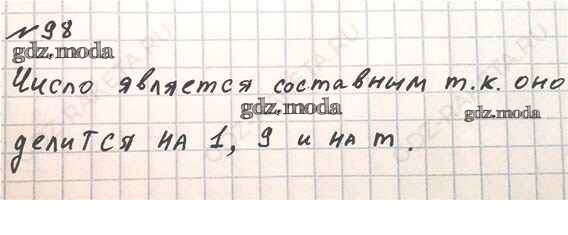 № 98
gdz.moda
Число является составным т.к. оно
gdz.moda
gdz.moda
делится на 1, 9 и на m.
GDZ-RAKETA.RU